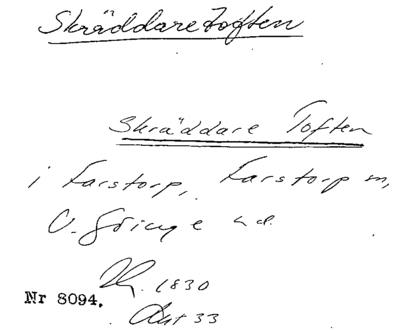 Skräddaretoften
Skräddare Toften
i Farstorp, Farstorp sn,
V. Göinge hd.
1830
Nr 8094.
Akt 33